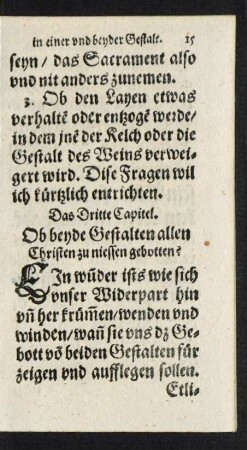 in einer vnd beyder Gestalt. 15
seyn / das Sacrament also
vnd nit anders zunemen.
3. Ob den Layen etwas
verhaltē oder entzogē werde/
in dem jnē der Kelch oder die
Gestalt des Weins verwei-
gert wird. Dise Fragen wil
ich kürtzlich entrichten.
Das Dritte Capitel.
Ob beyde Gestalten allen
Christen zu niessen gebotten?
EIn wūder ists wie sich
vnser Widerpart hin
vn̄ her krüm̄en/wenden vnd
winden/wan̄ sie vns dz Ge-
bott vō beiden Gestalten für
zeigen vnd aufflegen sollen.
Etli-